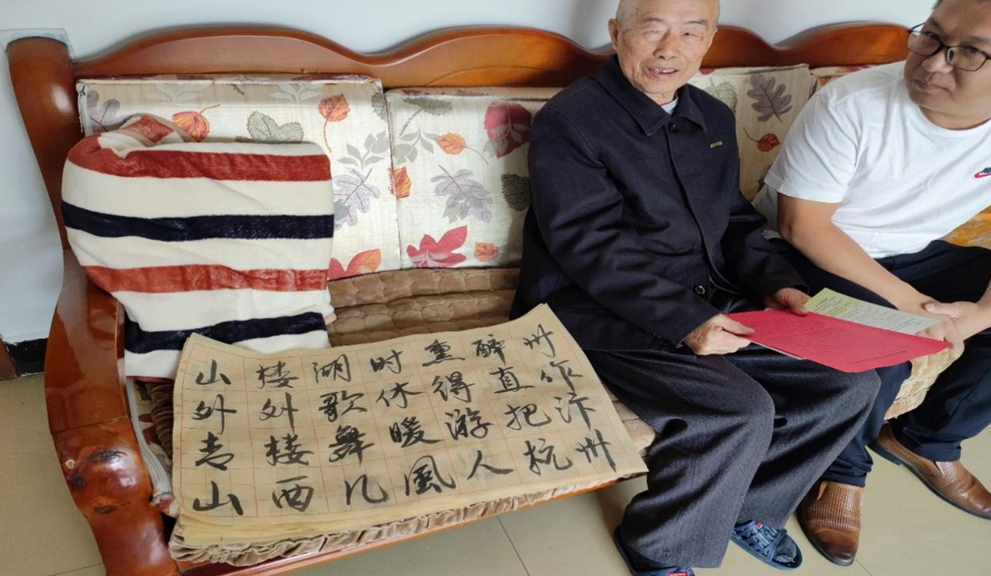 山外青山
楼外楼西
湖歌舞几
时休暖風
熏得游人
醉直把杭
州作汴州